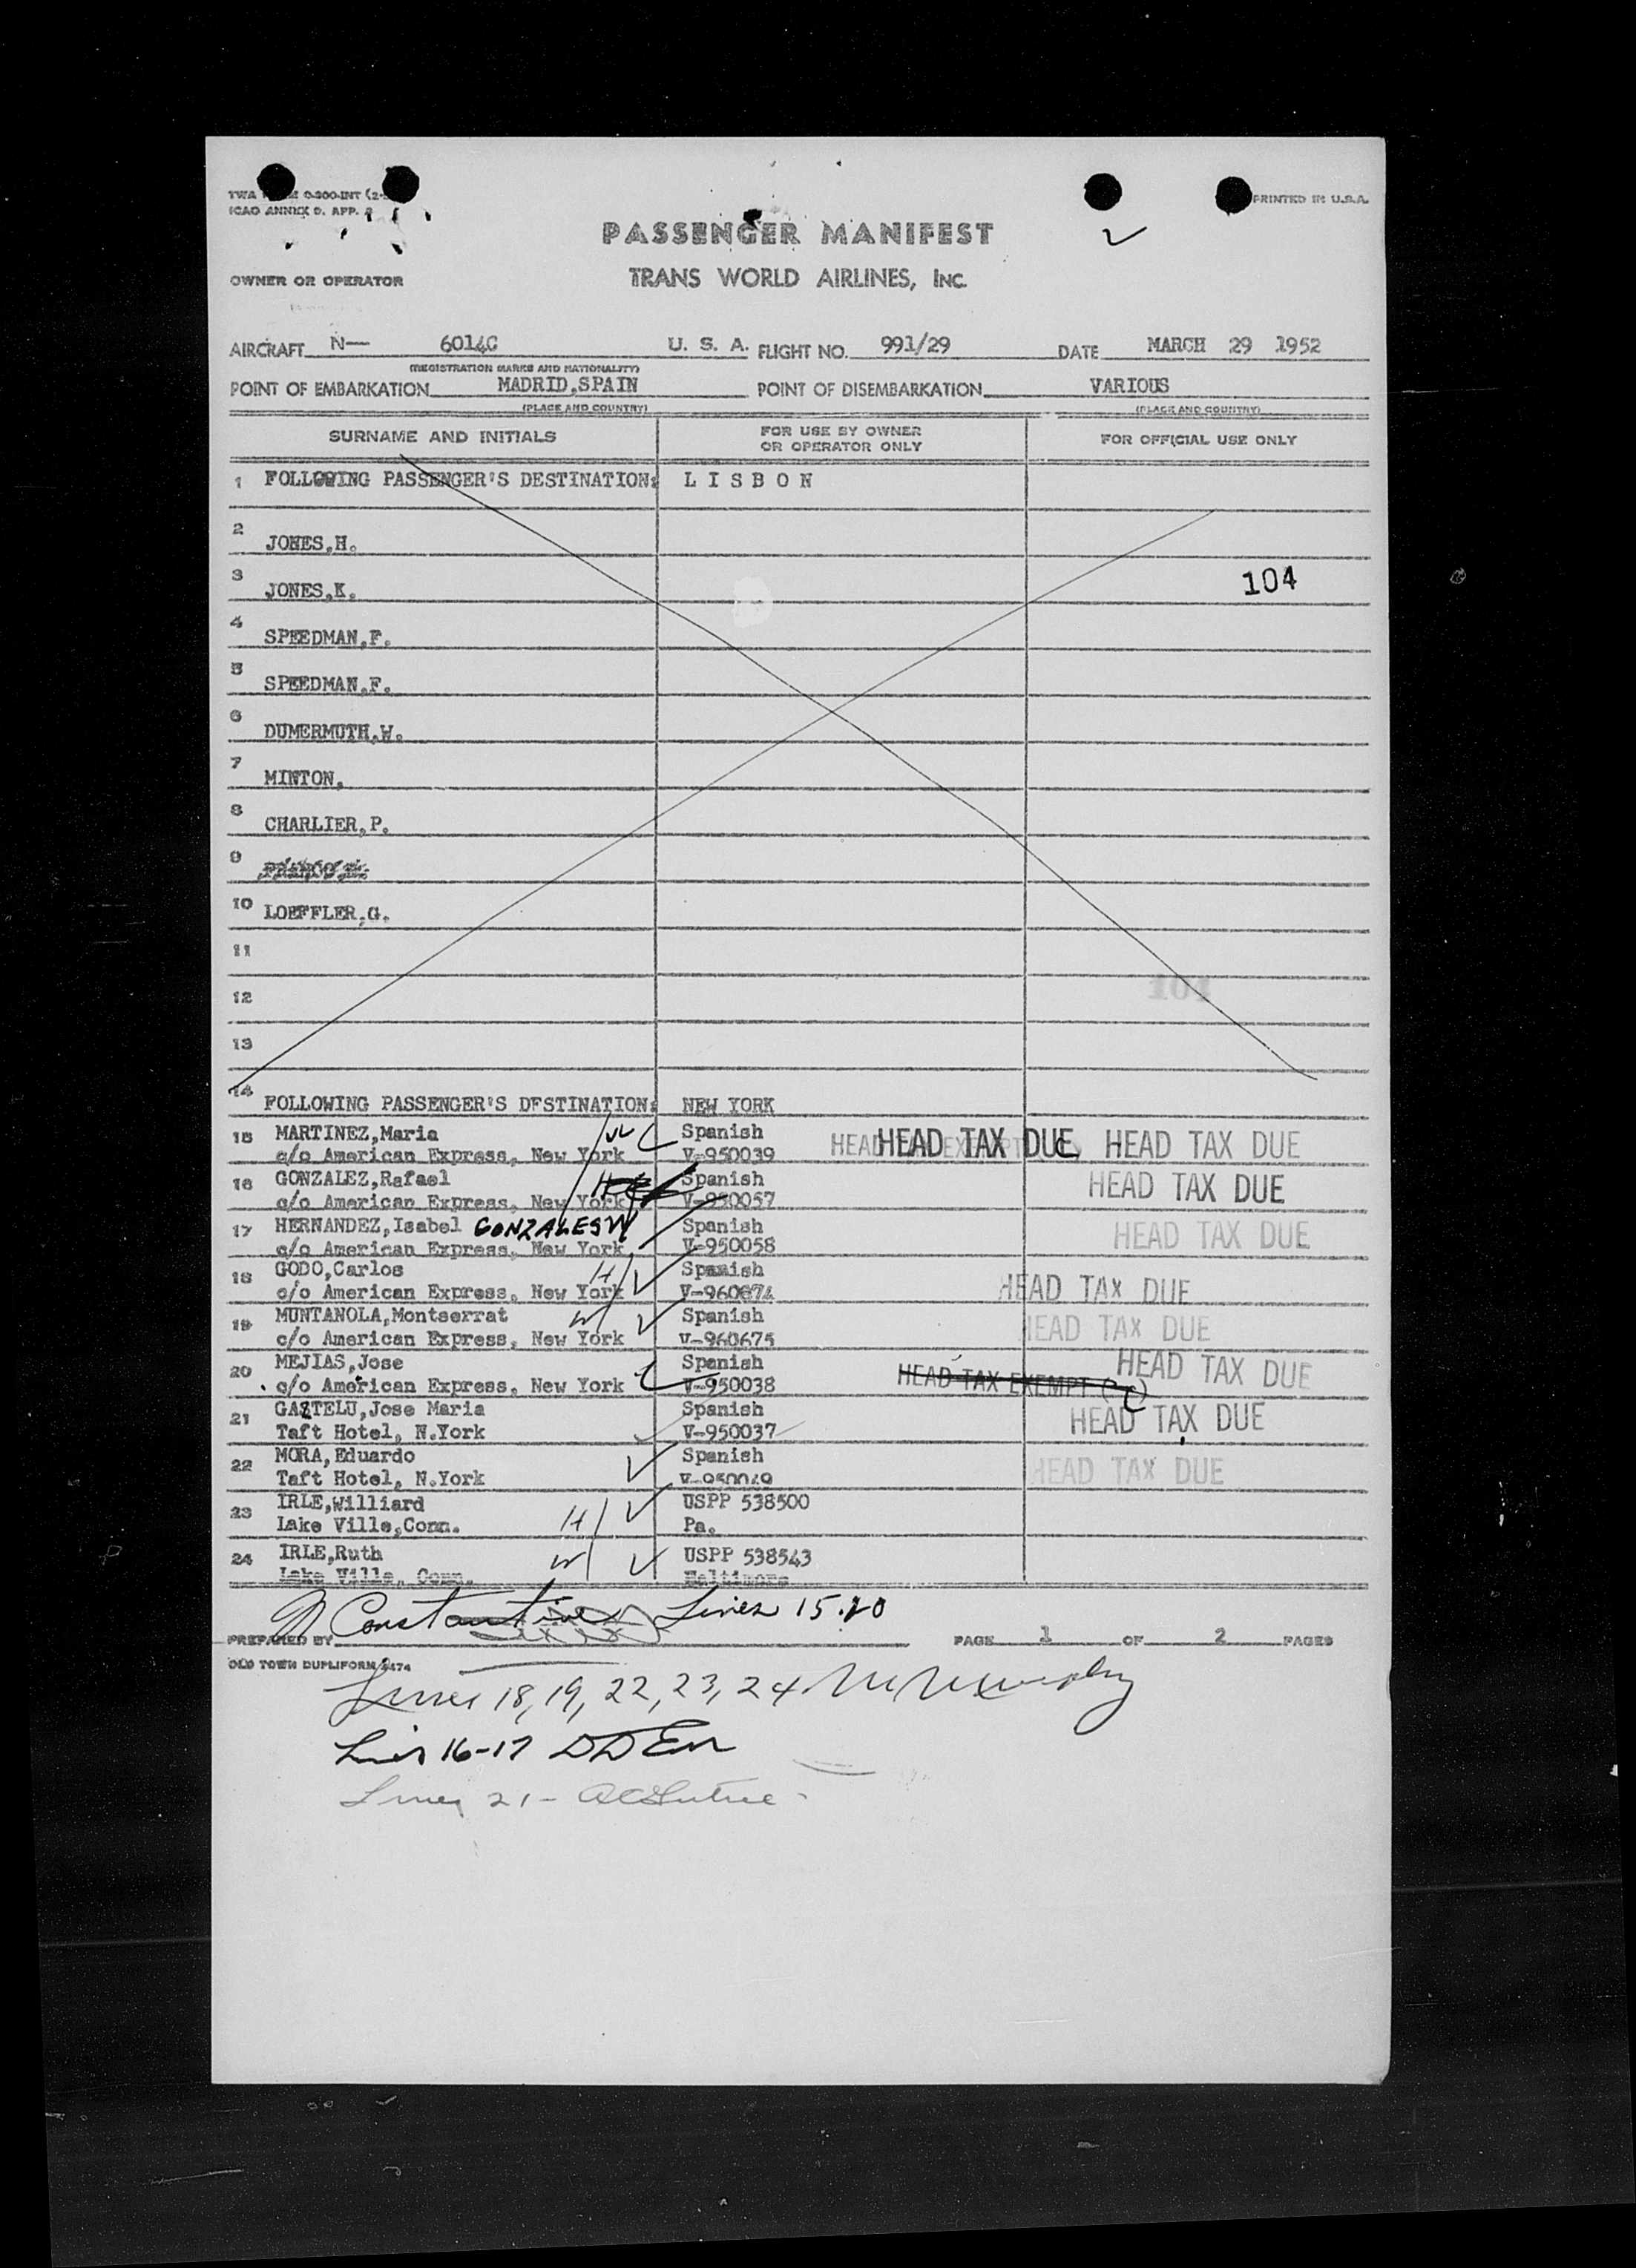 TWA 0-200-INT (2-
ICAO ANNEX 9. APP. 2
PRINTED IN U.S.A.
PASSENGER MANIFEST
OWNER OR OPERATOR
TRANS WORLD AIRLINES, INC.
AIRCRAFT N— 6014C U. S. A. FLIGHT NO. 991/29 DATE MARCH 29 1952
(REGISTRATION MARKS AND NATIONALITY)
POINT OF EMBARKATION MADRID,SPAIN POINT OF DISEMBARKATION VARIOUS
(PLACE AND COUNTRY) (PLACE AND COUNTRY)
SURNAME AND INITIALS FOR USE BY OWNER OR OPERATOR ONLY FOR OFFICIAL USE ONLY
1 FOLLOWING PASSENGER'S DESTINATION: L I S B O N
2 JONES,H.
3 JONES,K. 104
4 SPEEDMAN,F.
5 SPEEDMAN,F.
6 DUMERMUTH,W.
7 MINTON,
8 CHARLIER,P.
9
10 LOEFFLER,G.
11
12
13
14 FOLLOWING PASSENGER'S DESTINATION: NEW YORK
15 MARTINEZ,Maria Spanish HEAD TAX DUE HEAD TAX DUE
c/o American Express, New York V-950039
16 GONZALEZ,Rafael H Spanish HEAD TAX DUE
c/o American Express, New York V-950057
17 HERNANDEZ,Isabel GONZALES W Spanish HEAD TAX DUE
c/o American Express, New York V-950058
18 GODO,Carlos H Spanish HEAD TAX DUE
c/o American Express, New York V-960674
19 MUNTANOLA,Montserrat W Spanish HEAD TAX DUE
c/o American Express, New York V-960675
20 MEJIAS,Jose Spanish HEAD TAX DUE
c/o American Express, New York V-950038 HEAD TAX EXEMPT
21 GAZTELU,Jose Maria Spanish HEAD TAX DUE
Taft Hotel, N.York V-950037
22 MORA,Eduardo Spanish HEAD TAX DUE
Taft Hotel, N.York V-950049
23 IRLE,Williard USPP 538500
Lake Ville,Conn. H Pa.
24 IRLE,Ruth W USPP 538543
Lake Ville, Conn. Baltimore
Constantine Lines 15.20
PREPARED BY PAGE 1 OF 2 PAGES
OLD TOWN DUPLIFORM 2474
Lines 18, 19, 22, 23, 24
Lines 16-17
Lines 21 -